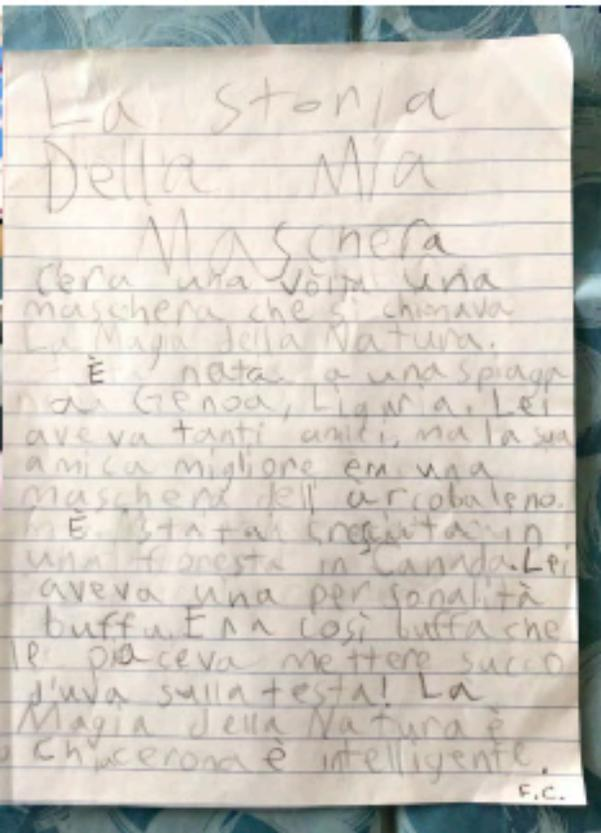 La storia
Della Mia
Maschera
C'era una volta una
maschera che si chimava
La Magia della Natura.
È nata a una spiaga
a Genoa, Liguria. Lei
aveva tanti amici, ma la sua
amica migliore era una
maschera dell'arcobaleno.
È stata cresciuta in
una foresta in Canada. Lei
aveva una personalità
buffa. Era così buffa che
le piaceva mettere succo
d'uva sulla testa! La
Magia della Natura è
chiacerona è intelligente.
F.C.